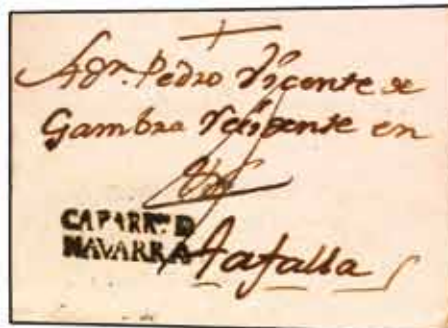 A Dn. Pedro Vicente de
Gambra Residente en
CAPARR.º D
NAVARRA
Tafalla